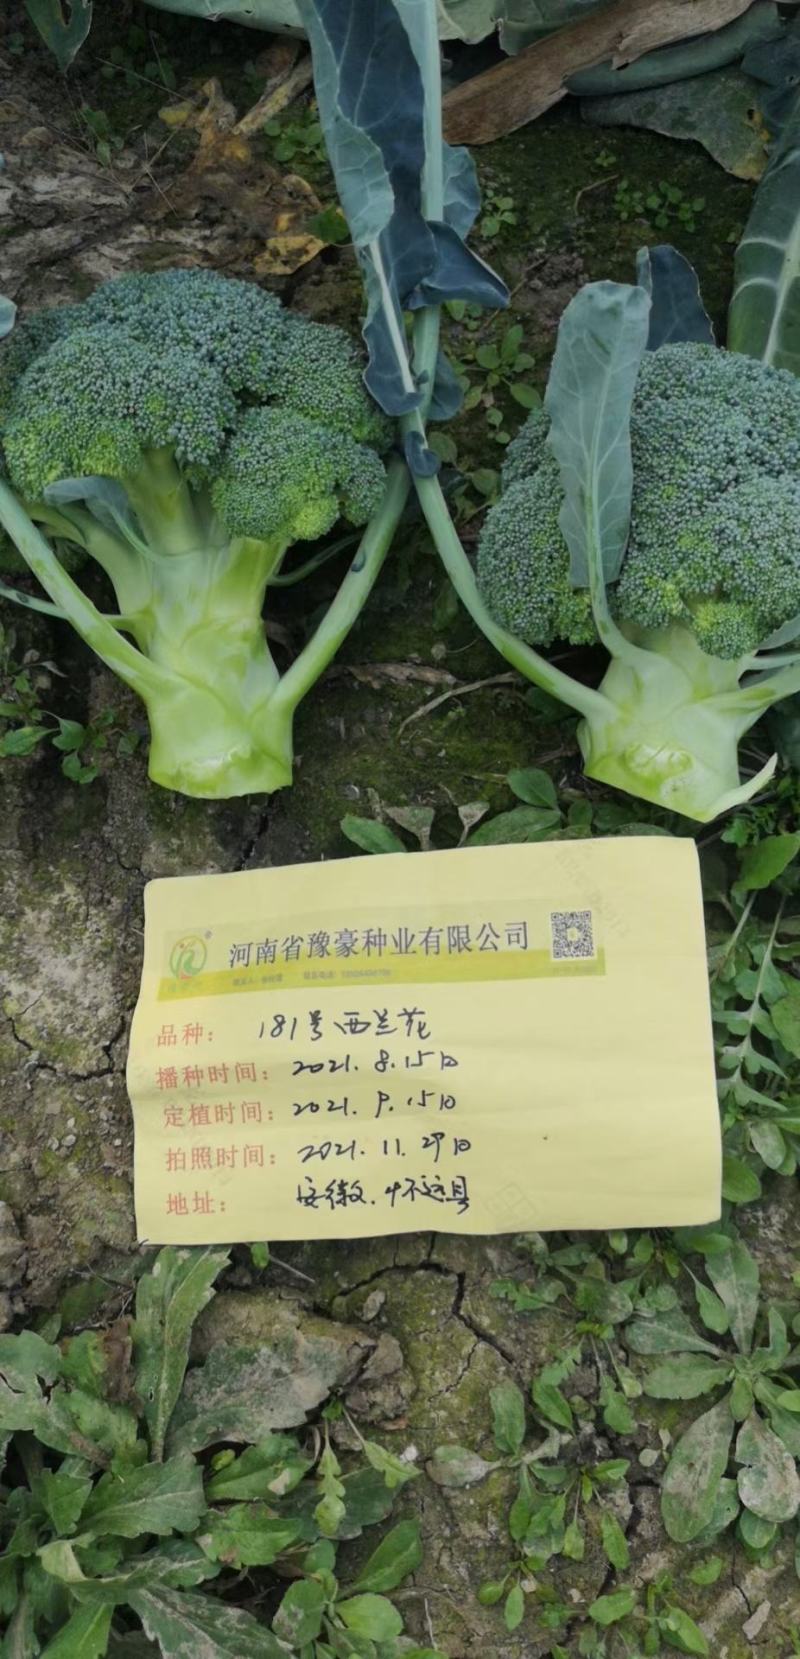 河南省豫豪种业有限公司
品种： 181号西兰花
播种时间： 2021.8.15日
定植时间： 2021.9.15日
拍照时间： 2021.11.29日
地址： 安徽.怀远县